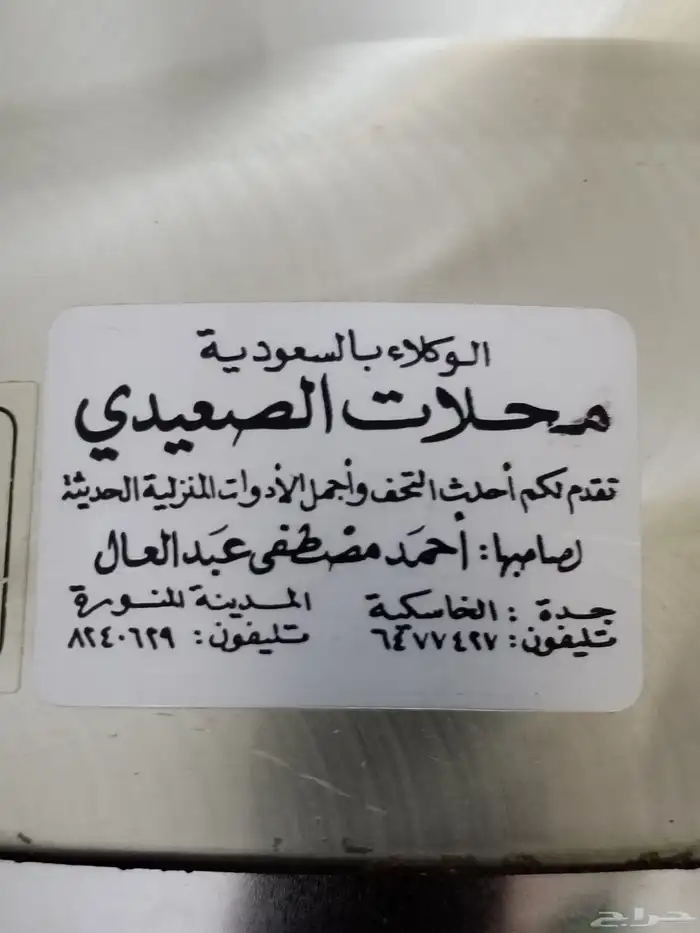 الوكلاء بالسعودية
محلات الصعيدي
تقدم لكم أحدث التحف وأجمل الأدوات المنزلية الحديثة
لصاحبها: أحمد مصطفى عبد العال
جدة: الخاسكية
تليفون: ٦٤٧٧٤٢٧
المدينة المنورة
تليفون: ٨٢٤٠٦٢٩
حراج